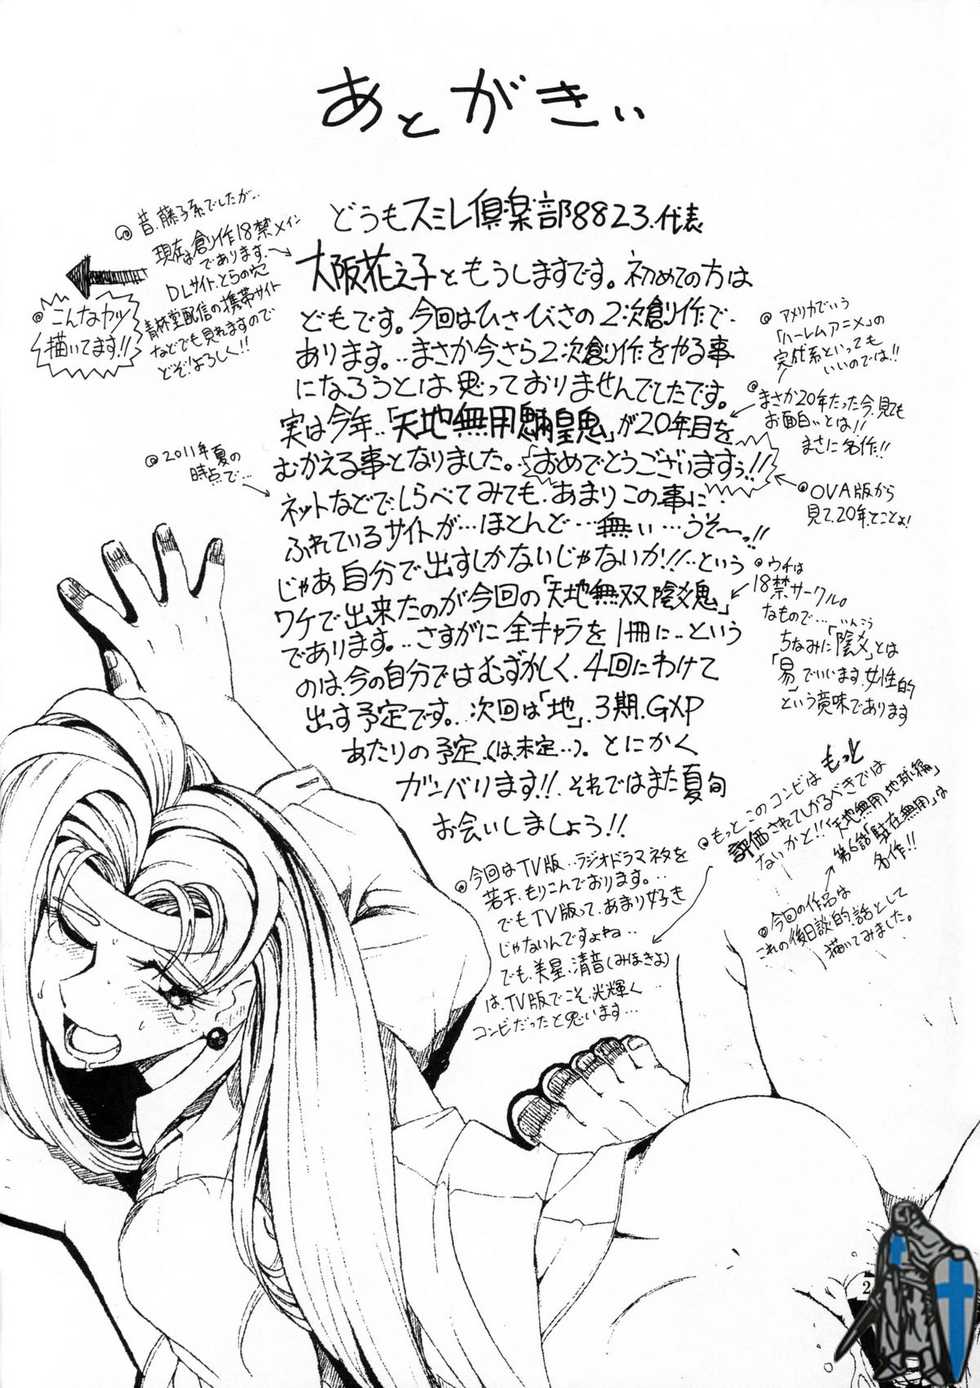 あとがきぃ
どうもスミレ倶楽部8823.代表
大阪花之子ともうしますです。初めての方は
どもです。今回はひさびさの2次創作で
あります。‥まさか今さら2次創作をやる事
になろうとは思っておりませんでしたです。
実は今年‥「天地無用魎皇鬼」が20年目を
むかえる事となりました。おめでとうございますぅ!!
ネットなどでしらべてみても、あまりこの事に
ふれているサイトが…ほとんど…無ぃ…うそ〜っ!!
じゃあ自分で出すしかないじゃないか!!‥という
ワケで出来たのが今回の「天地無双陰爻鬼」
であります。‥さすがに全キャラを1冊に‥という
のは、今の自分ではむずかしく、4回にわけて
出す予定です。‥次回は「地」、3期、GXP
あたりの予定(は未定‥)。とにかく
ガンバリます!!それではまた夏旬
お会いしましょう!!
昔、藤子系でしたが‥
現在は創作18禁メイン
であります。
DLサイト、とらの穴
青林堂配信の携帯サイト
などでも見れますので
どぞ!よろしく!!
こんなカッ
描いてます!!
2011年夏の
時点で…
アメリカでいう
「ハーレムアニメ」の
完成系といっても
いいのでは!!
まさか20年たった今、見ても
お面白いとは!!
まさに名作!!
OVA版から
見て、20年てことょ!
ウチは
18禁サークル。
なもので…
いんこう
ちなみに「陰爻」とは
「易」でいいます、女性的
という意味であります
もっとこのコンビはもっと
評価されてしかるべきでは
ないかと!!「天地無用地球編」
第6話「駐在無用」は
名作!!
今回の作品は
これの後日談的話として
描いてみました。
今回はTV版‥ラジオドラマネタを
若干、もりこんでおります。…
でもTV版って、あまり好き
じゃないんですょねぇ…
でも、美星、清音(みほきよ)
は、TV版でこそ、光輝く
コンビだったと思います…
2